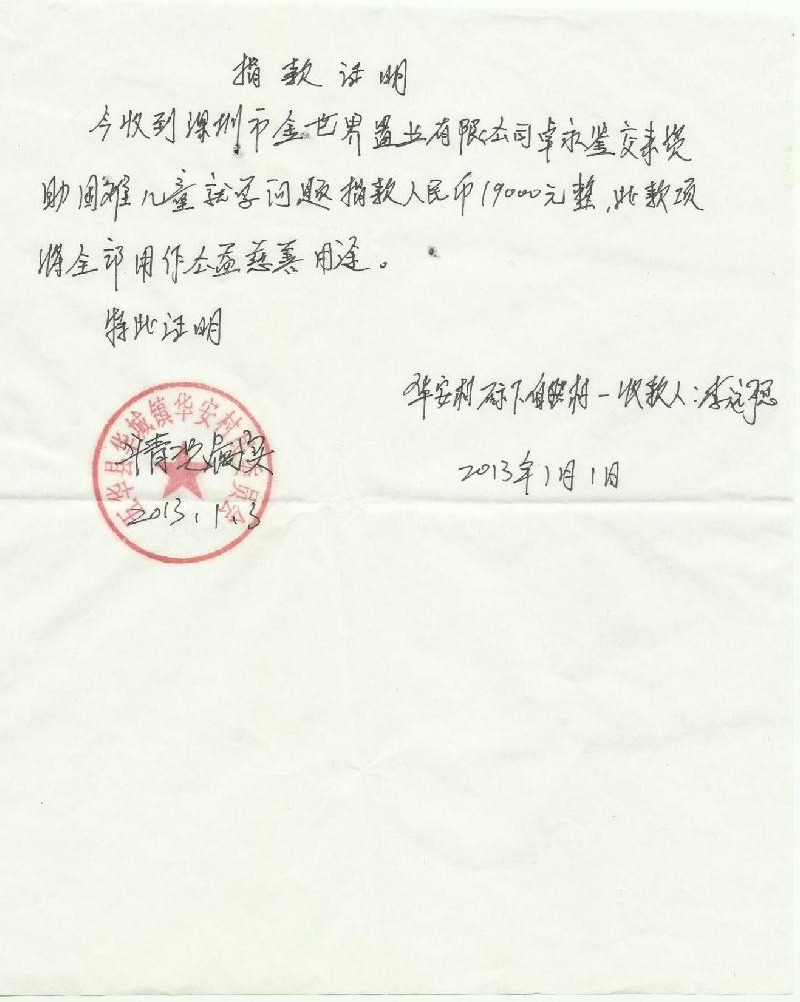 捐款证明
今收到深圳市金世界置业有限公司卓永鉴交来资
助困难儿童就学问题捐款人民币19000元整,此款项
将全部用作公益慈善用途。
特此证明
华安村 自然村-收款人:李
2013年1月1日
五华县华城镇华安村民委员会
情况属实
2013.1.3